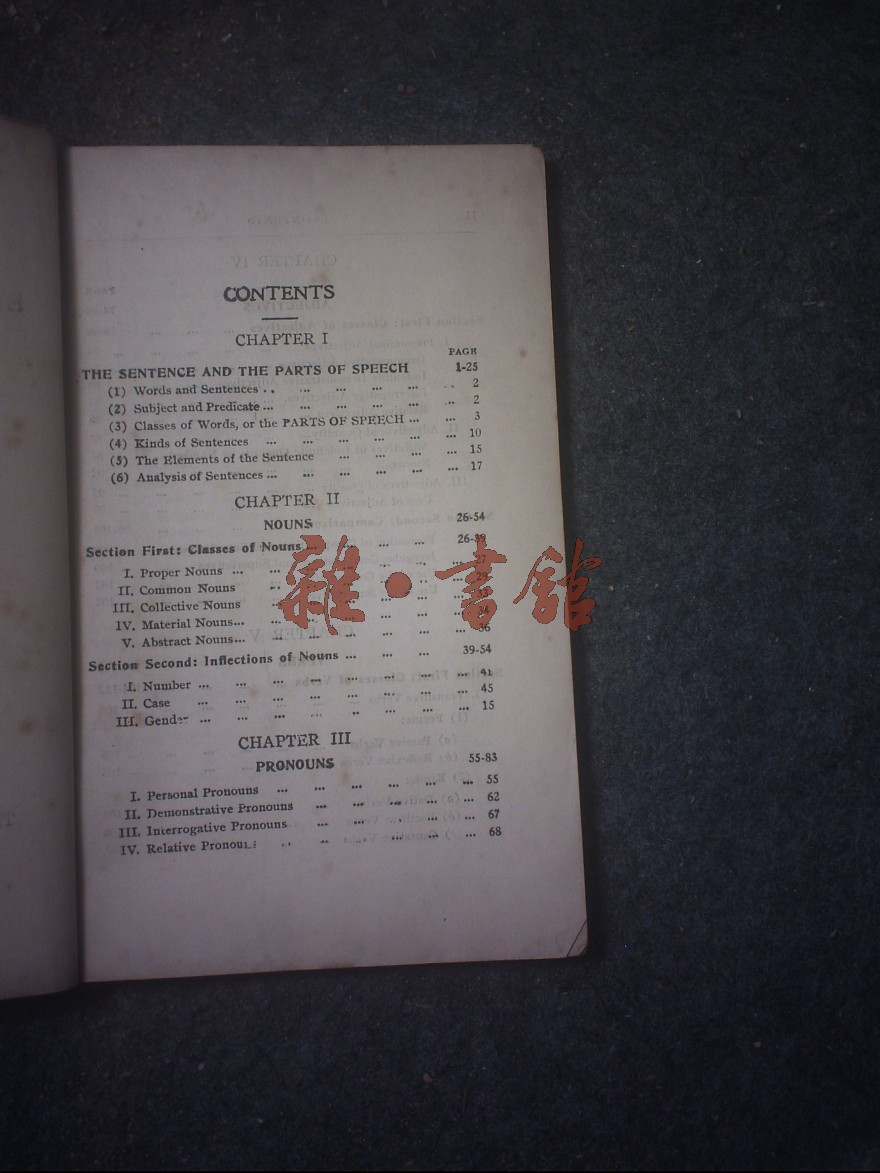 CONTENTS
CHAPTER I
PAGE
THE SENTENCE AND THE PARTS OF SPEECH 1-25
(1) Words and Sentences .. ... ... ... ... .. 2
(2) Subject and Predicate ... ... ... ... ... .. 2
(3) Classes of Words, or the PARTS OF SPEECH ... ... 3
(4) Kinds of Sentences ... ... ... ... ... ... 10
(5) The Elements of the Sentence ... ... ... ... 15
(6) Analysis of Sentences ... ... ... ... ... ... 17
CHAPTER II
NOUNS 26-54
Section First: Classes of Nouns ... ... ... 26-39
I. Proper Nouns ... ... ... 27
II. Common Nouns ... 29
III. Collective Nouns ... 33
IV. Material Nouns ... ... ... 34
V. Abstract Nouns ... ... ... ... ... ... ... 36
雜·書館
Section Second: Inflections of Nouns ... ... ... 39-54
I. Number ... ... ... ... ... ... ... ... 41
II. Case ... ... ... ... ... ... ... 45
III. Gender ... ... ... ... ... ... ... 15
CHAPTER III
PRONOUNS 55-83
I. Personal Pronouns ... ... ... ... ... ... 55
II. Demonstrative Pronouns ... ... ... ... ... 62
III. Interrogative Pronouns ... ... ... ... ... 67
IV. Relative Pronouns .. .. ... ... ... 68